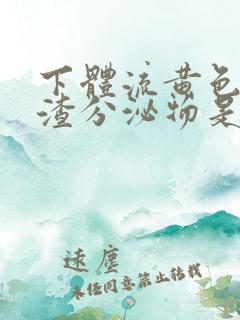 下體流黃色
渣分泌物是
遠塵
未经同意禁止转载